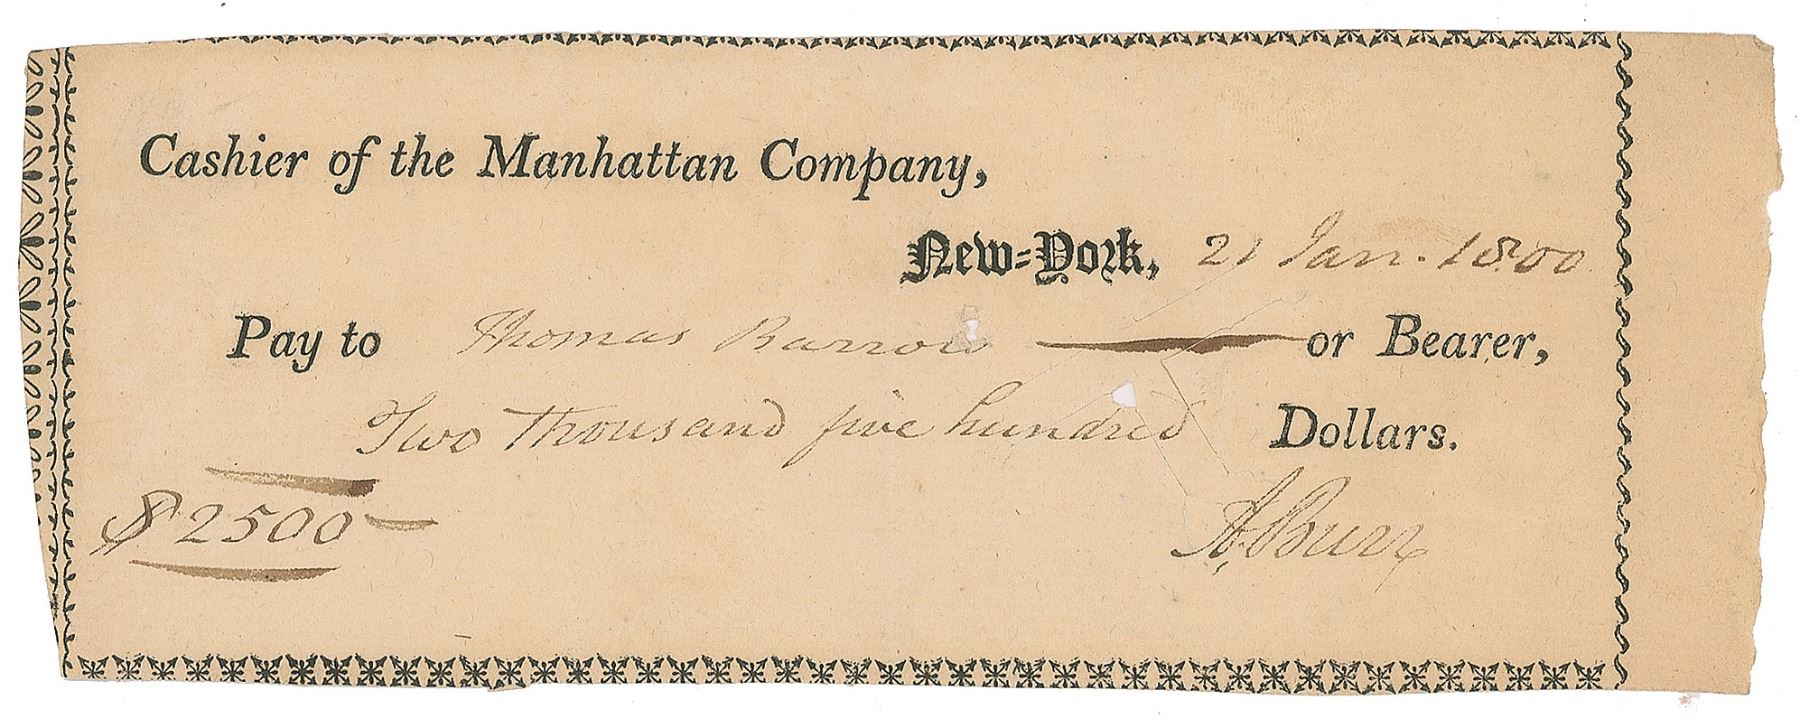 Cashier of the Manhattan Company,
New=York, 21 Jan. 1800
Pay to Thomas Barrow or Bearer,
Two thousand five hundred Dollars.
$2500
A. Burr